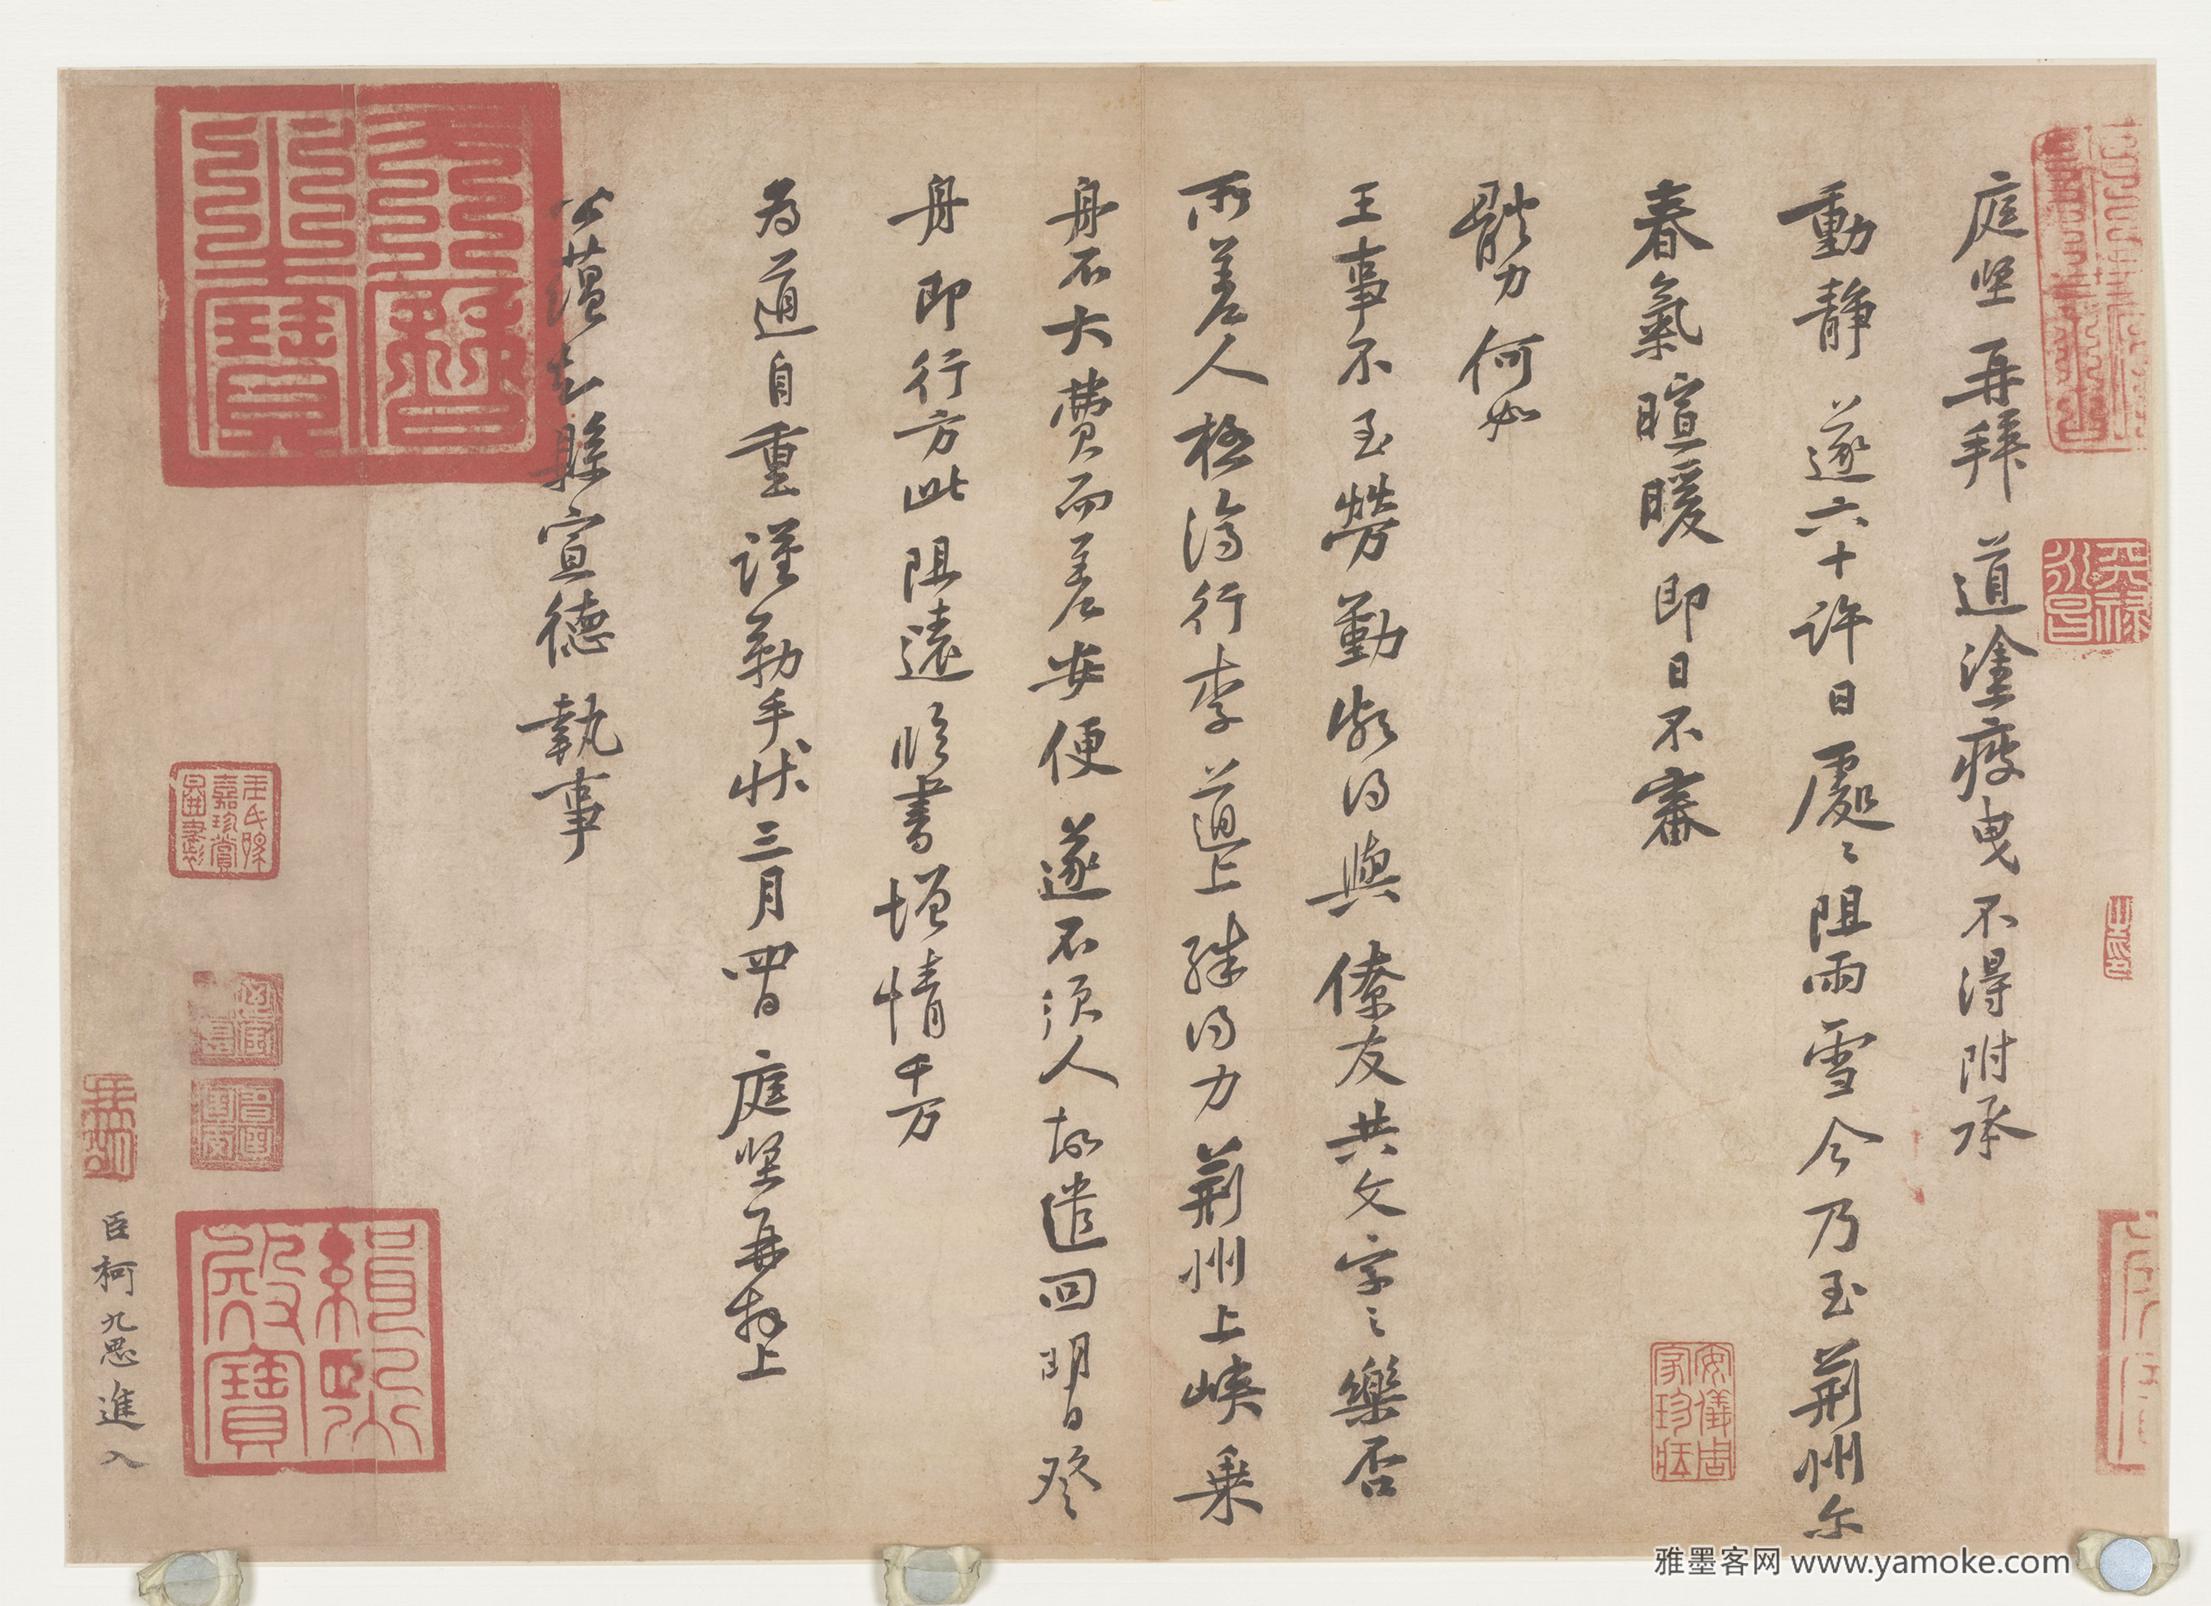 庭堅再拜道塗疲曳不得附承
動静遂六十許日處〻阻雨雪今乃至荊州尔
春氣暄暖即日不審
體力何如
王事不至勞勤頗得與僚友共文字之樂否
所差人極濟行李道上殊得力荊州上峽乗
舟不大費而差安便遂不須人故遣回明日發
舟即行方此阻遠臨書增情千万
為道自重謹勒手狀三月四日庭堅再拜上
公蘊知縣宣德執事
臣柯九思進入
天曆之寶
緝熙殿寶
安儀周家珍藏
雅墨客网 www.yamoke.com